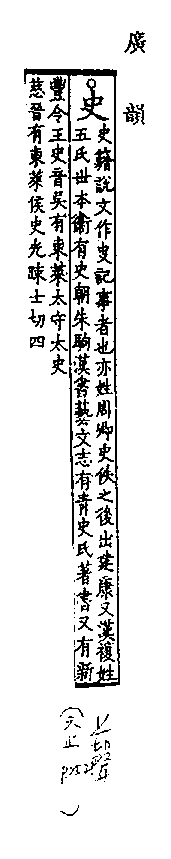 廣韻
史
史籍說文作叓記事者也亦姓周卿史佚之後出建康又漢複姓
五氏世本衞有史朝朱駒漢書藝文志有青史氏著書又有新
豐令王史音吳有東萊太守太史
慈晉有東萊侯史光踈士切四
上